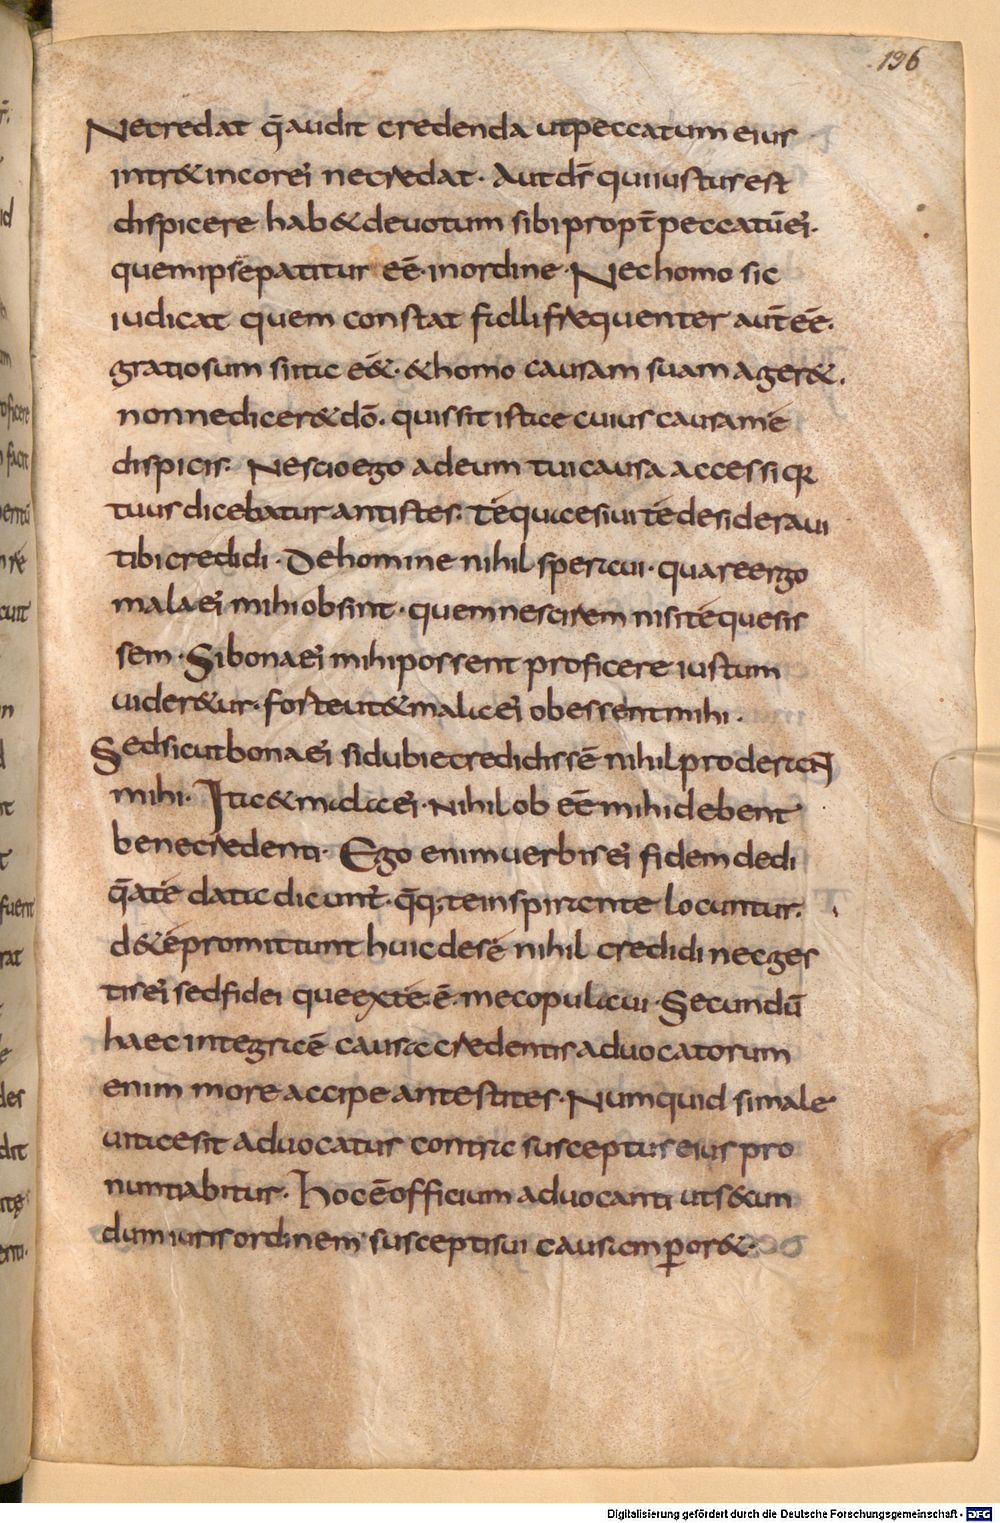 136
Necredat q̄ audit credenda utpeccatum eius
intr& incor ei necredat. Aut dr̄ qui iustus est
dispicere hab& deuotum sibi propt̄ peccatū ei.
quem ipse patitur eē. in ordine. Nec homo sic
iudicat quem constat falli frequenter aut eē.
gratiosum si ita eē&. & homo causam suam ager&.
nonne dicer& dō. quis sit iste cuius causa me
dispicis. Nescio ego ad eum tui causa accessi qr
tuus dicebatur antistes. te quaesiui te desideraui
tibi credidi. De homine nihil speraui. quare ergo
mala ei mihi obsint. quem nescirem nisi te quesis
sem. Si bona ei mihi possent proficere iustum
uider&ur. forte ut & mala ei obessent mihi.
Sed sicut bona ei si dubie credidissē nihil proderant
mihi. Ita & mala ei. Nihil ob eē mihi debent
bene credenti. Ego enim uerbis ei fidem dedi
q̄ a te data dicunt̄. q̄q; te inspirante locuntur.
d& e promittunt huic de se nihil credidi nec ges
tis ei sed fidei que ex te ē. me copulaui. Secundū
haec integracē causa credentis aduocatorum
enim more accipe antestites. Numquid si male
uitae sit aduocatus contra susceptus eius pro
nuntiabitur. Hoc ē officium aduocanti ut s&un
dum iuris ordinem susceptis ui causam p̄or&.
Digitalisierung gefördert durch die Deutsche Forschungsgemeinschaft - DFG